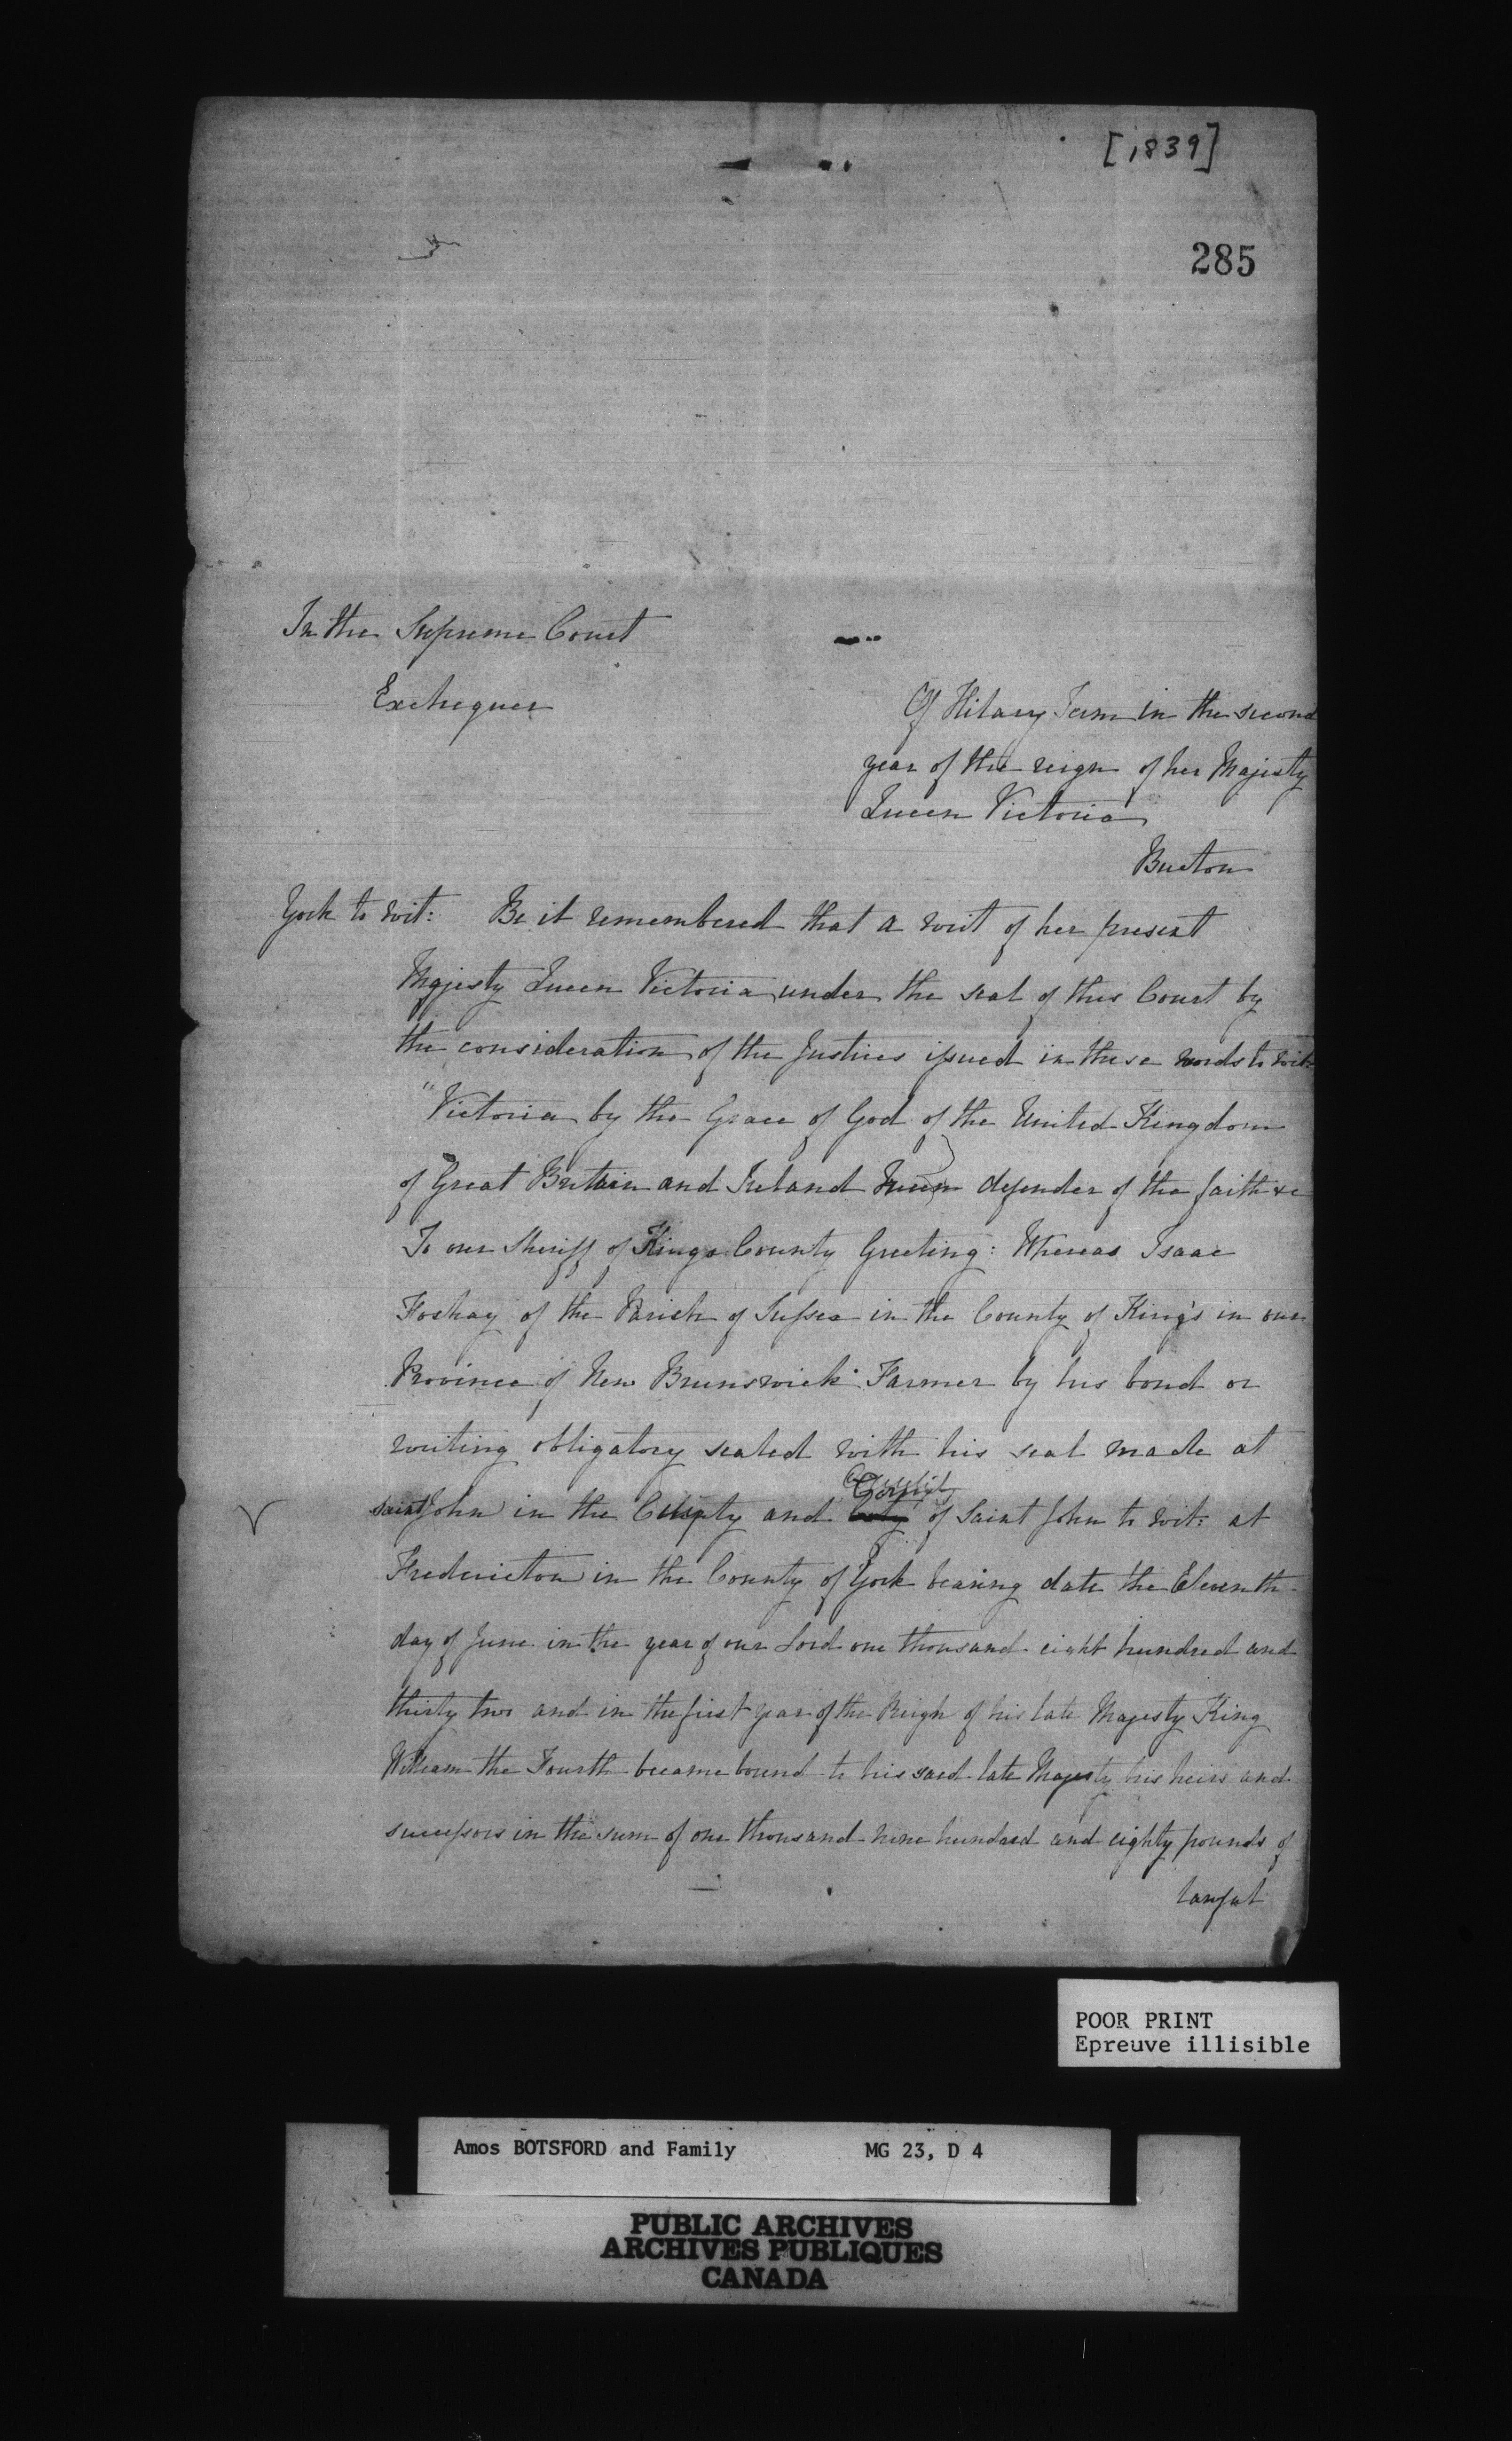 [1839]
285
In the Supreme Court
Exchequer
Of Hilary Term in the second
year of the reign of her Majesty
Queen Victoria
Burton
York to wit: Be it remembered that a writ of her present
Majesty Queen Victoria under the seal of this Court by
the consideration of the Justices issued in these words to wit:
"Victoria by the Grace of God of the United Kingdom
of Great Britain and Ireland Queen defender of the faith &c
To our Sheriff of Kings County Greeting: Whereas Isaac
Foshay of the Parish of Sussex in the County of King's in our
Province of New Brunswick Farmer by his bond or
writing obligatory sealed with his seal made at
County
saint John in the City and of Saint John to wit: at
Fredericton in the County of York bearing date the Eleventh
day of June in the year of our Lord one thousand eight hundred and
thirty two and in the first year of the Reign of his late Majesty King
William the Fourth became bound to his said late Majesty his heirs and
successors in the sum of one thousand nine hundred and eighty pounds of
lawful
POOR PRINT
Epreuve illisible
Amos BOTSFORD and Family MG 23, D 4
PUBLIC ARCHIVES
ARCHIVES PUBLIQUES
CANADA